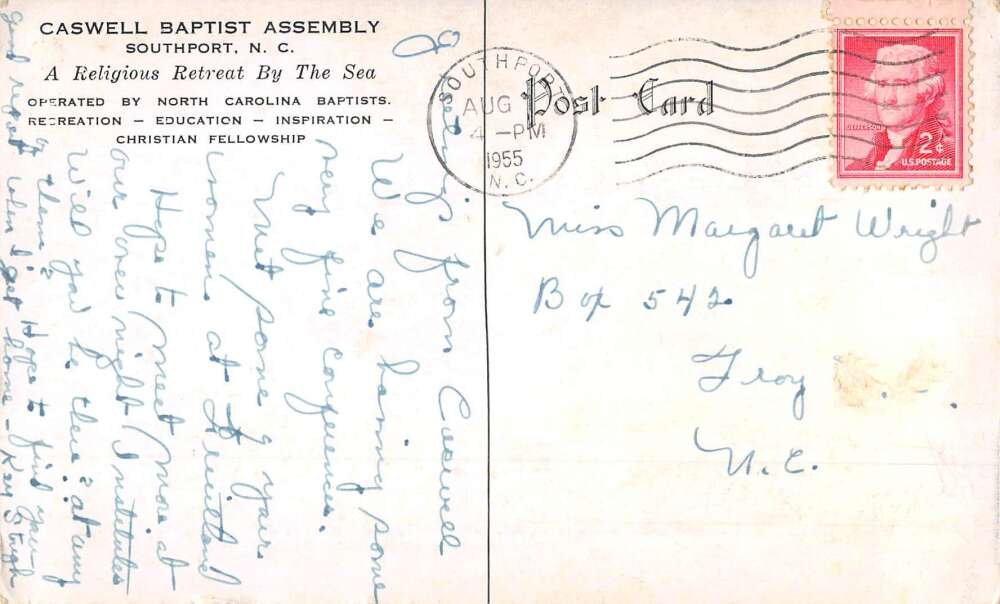 CASWELL BAPTIST ASSEMBLY
SOUTHPORT, N. C.
A Religious Retreat By The Sea
OPERATED BY NORTH CAROLINA BAPTISTS.
RECREATION – EDUCATION – INSPIRATION –
CHRISTIAN FELLOWSHIP
Post Card
SOUTHPORT
AUG
4 - PM
1955
N. C.
JEFFERSON
2¢
U.S. POSTAGE
Miss Margaret Wright
Box 542
Troy
N. C.
Greetings from Caswell
We are having some
very fine conferences.
Met some of your
women at Fruitland
Hope to meet more at
our one night Institutes
Will you be there? at any
of them? Hope to find you
good report when I get home –